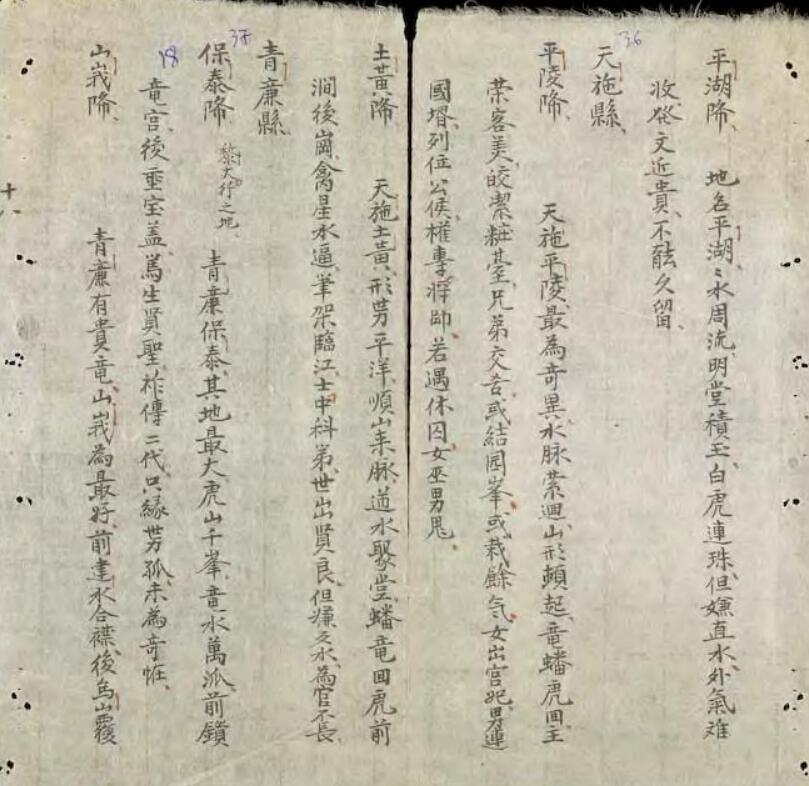 36
平湖降 地名平湖〻水周流明堂積玉白虎連珠但嫌直水外氣难
收發文近貴不能久留
天施縣
平陵降 天施平陵最為奇異水脉縈迴山形頓起竜蟠虎囬主
荣客美皎潔粧䑓兄弟交 或結圓峯或栽餘气女出宫妃男連
國壻列位公侯權專將帥若遇休囚女巫男鬼
土黄降 天施土黄形势平洋順山来脉逆水聚堂蟠竜囬虎前
澗後崗禽星水逼筆架臨江士中科第世出賢良但嫌 水為官不長
青廉縣
37
保泰降 黎大行之地 青廉保泰其地最大虎山千峯竜水萬派前鎖
竜宫後垂宝盖篤生賢聖祚傳二代只緣势孤未為奇恠
18
山峩降 青廉有貴竜山峩為最好前建水合襟後烏山覆
十八